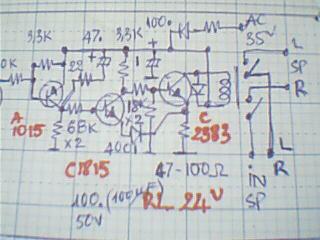 3,3K 47. 3,3K 100. AC
35V
0K 22 1 L
SP
R
A
1015
68K
x2
18K
x2
C
2383
400
C1815
47-100Ω
L
R
iN
SP
100. (100µF)
50V
RL 24V